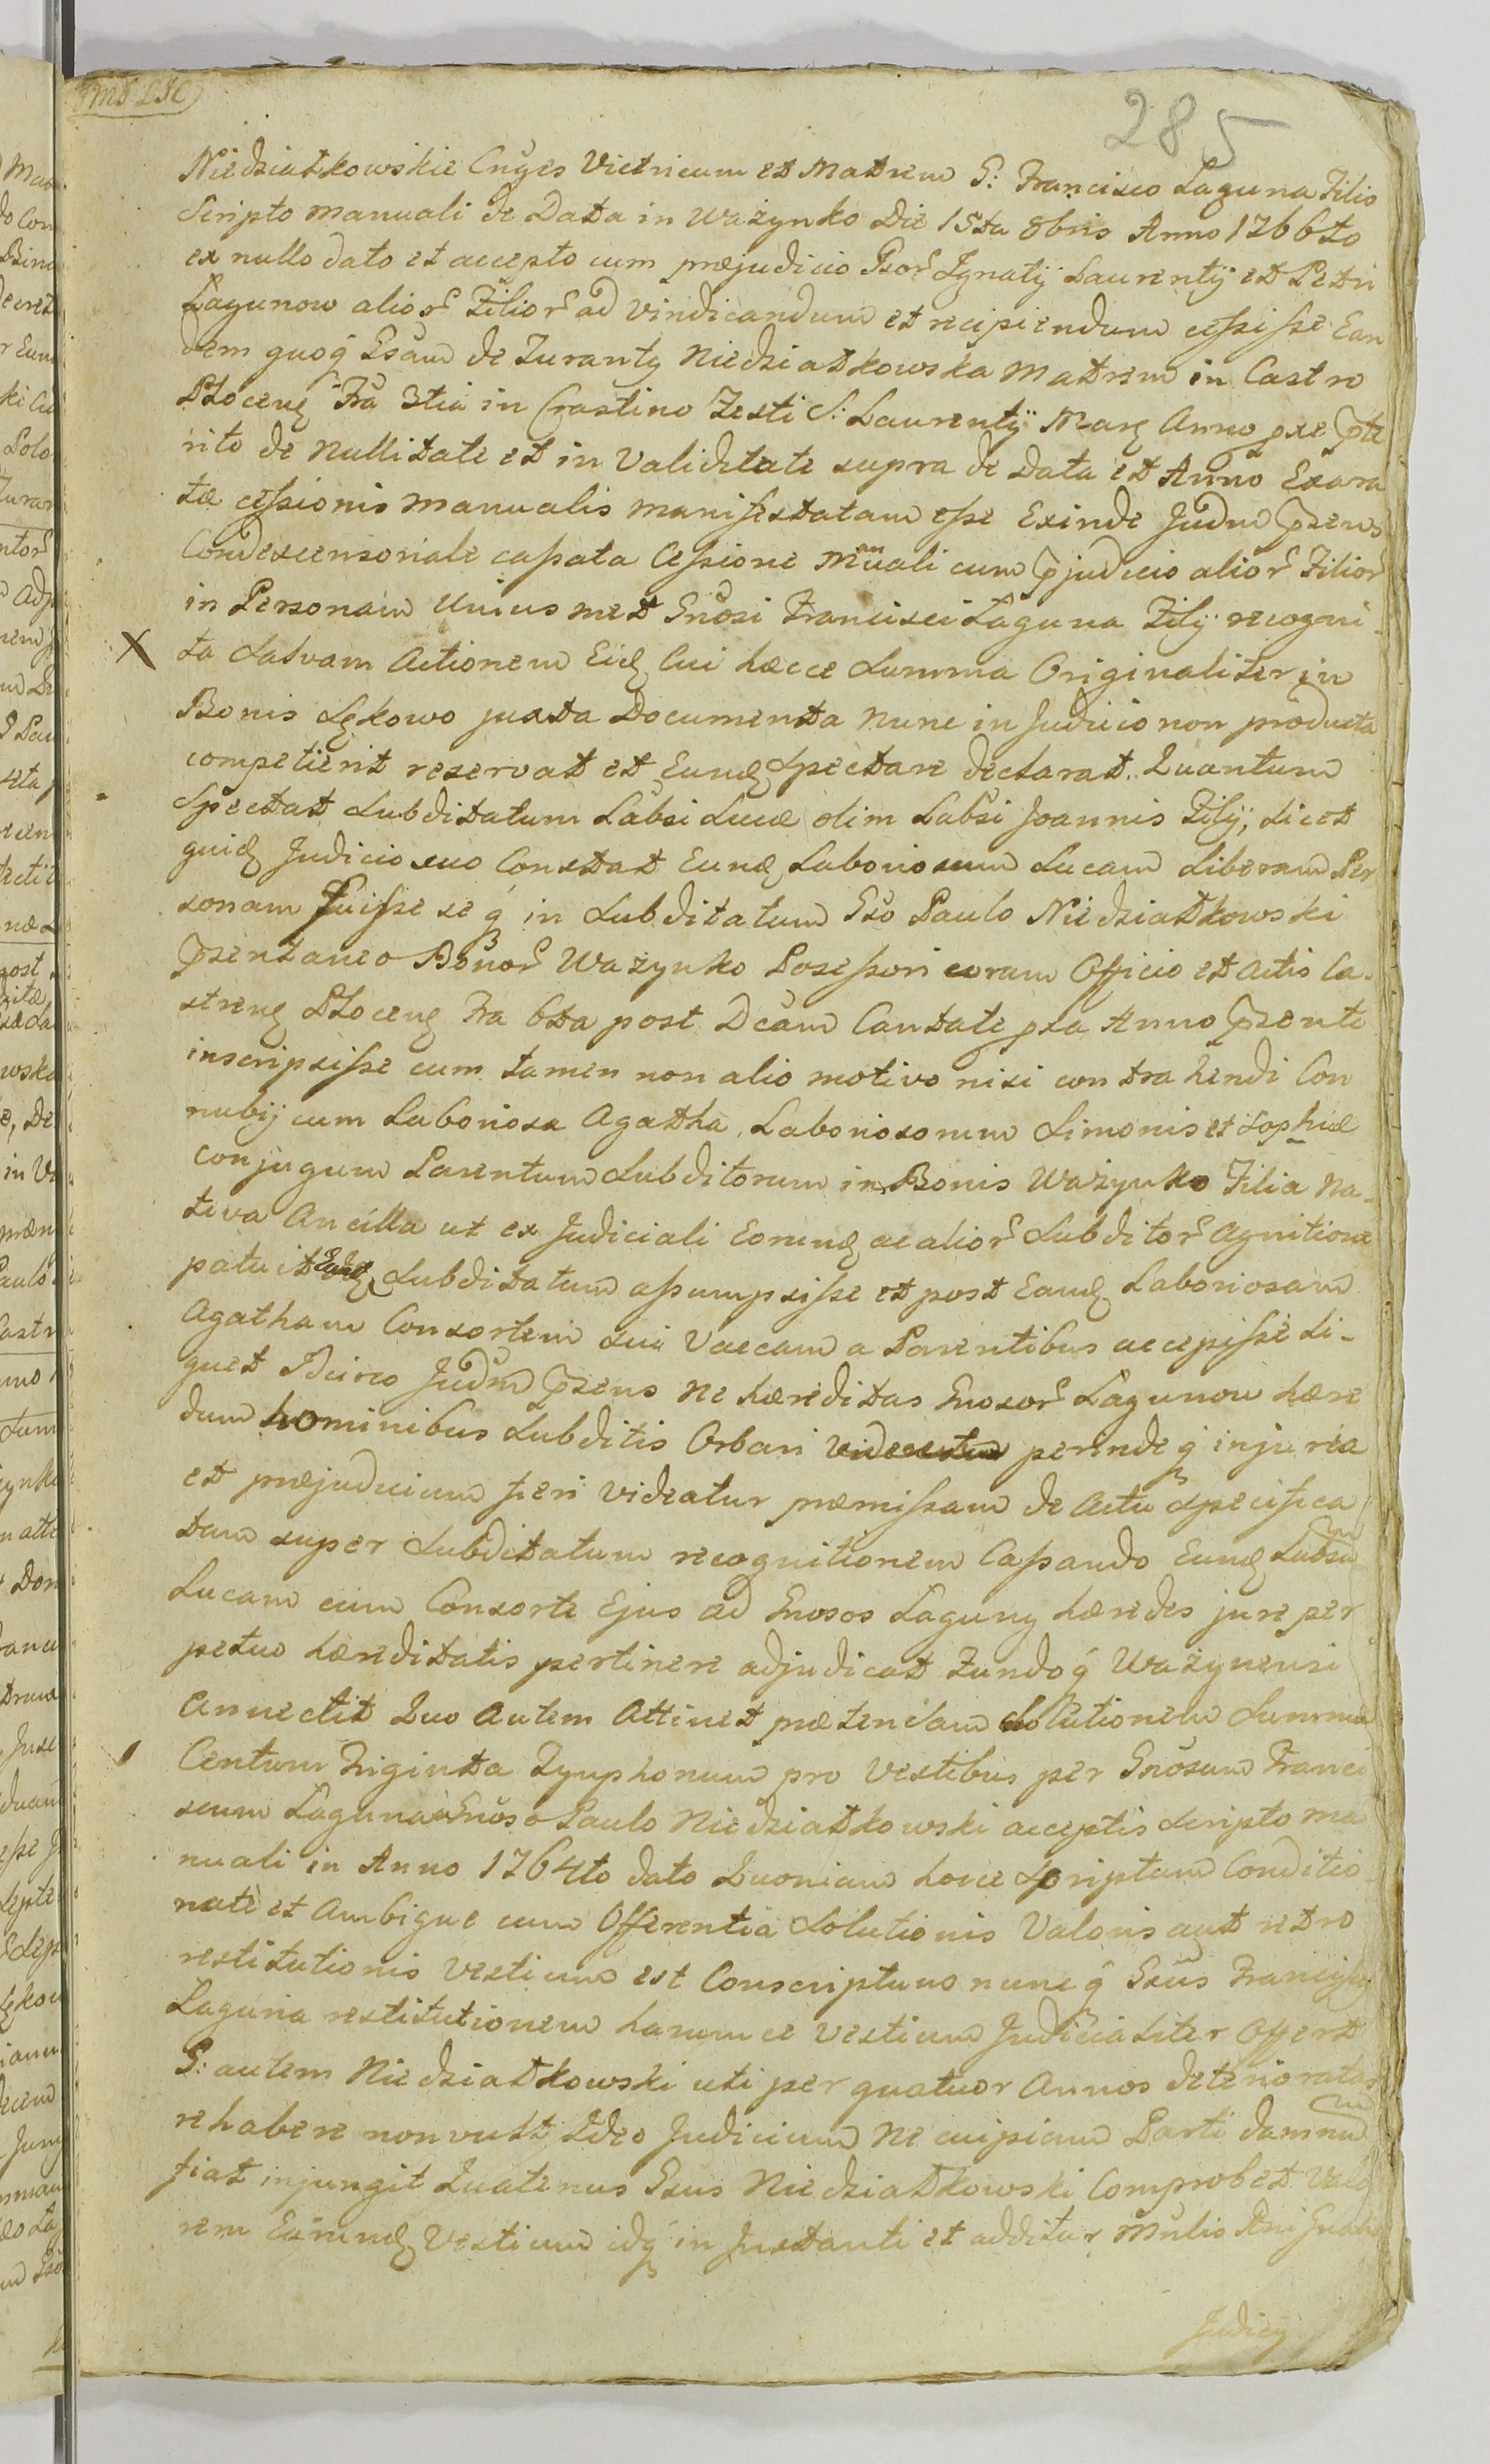 285
Niedziałkowskie Cnges Victricum et Matrem G: Francisco Łaguna Filio
Scripto manuali de Data in Ważynko Die 15ta 8bris Anno 1766to
ex nullo dato et accepto cum præjudicio Gsor Ignatij Laurentij et Petri
Łagunow alior Filior ad vindicandum et recipiendum cessisse Ean
dem quoq Gsam de Zuranty Niedziałkowska Matrem in Castro
Płocenq Fra 3tia in Crastino Festi S: Laurentij Marq Anno pxe pte
rito de Nullitate et in Validitate supra de Data et Anno Exara
tæ cessionis manualis manifestatam esse Exinde Judm Pzens
Condescensoriale cassata Cessione Mnuali cum pjudicio alior Filior
in Personam Unius met Gnosi Francisci Łaguna Filij recogni
ta salvam Actionem Eidq Cui hæcce Summa Originaliter in
Bonis Lękowo juxta Documenta nunc in Judicio non producta
competierit reservat et Eundq Spectare declarat. Quantum
Spectat Subditatum Labsi Lucæ olim Labsi Joannis Filij, licet
quidq Judicio suo Constat Eundq Laboriosum Lucam Liberam Per
sonam fuisse seq in Subditatum Gso Paulo Niedziałkowski
Pzentaneo Bonor Ważynko Possessori coram Officio et Actis Ca-
strenq Płocenq Fra 6ta post Dcam Cantate pxa Anno Pzente
inscripsisse cum tamen non alio motivo nisi contrahendi Con
nubij cum Laboriosa Agatha, Laboriosorum Simonis et Sophiæ
Conjugum Parentum Subditorum in Bonis Ważynko Filia Na-
tiva Ancilla ut ex Judiciali Eorundq ac alior Subditor Agnitione
patuit Subditatum assumpsisse et post Eandq Laboriosam
Agatham Consortem sui Vaccam a Parentibus accepisse li-
quet Idcirco Judm Pzens ne hæreditas Gnosor Łagunow hære
dum hominibus Subditis Orbari perindeq injuria
et præjudicium fieri videatur præmissam de Actu specifica
tam super Subditatum recognitionem Cassando Eundq Labsum
Lucam cum Consorte Ejus ad Gnosos Łaguny hæredes jure per
petuo hæreditatis pertinere adjudicat Fundoq Ważynensi
Annectit Quo Autem Attinet prætensam Solutionem Summæ
Centum Triginta Tynphonum pro Vestibus per Gnosum Franci
scum Łaguna a Gnoso Paulo Niedziałkowski acceptis Scripto ma
nuali in Anno 1764to dato Quoniam hocce Scriptum Conditio
nate et Ambigue cum Offerentia Solutionis Valoris aut retro
restitutionis Vestium est Conscriptum nuncq Gsus Franciscus
Łaguna restitutionem harumce Vestium Judicialiter Offert
G: autem Niedziałkowski uti per quatuor Annos deterioratas
rehabere non vult Ideo Judicium Ne cuipiam Parti damnum
fiat injungit Quatenus Gsus Niedziałkowski Comprobet Valo
rem Earundq Vestium idq in Instanti et additur Mnlis
Judicij